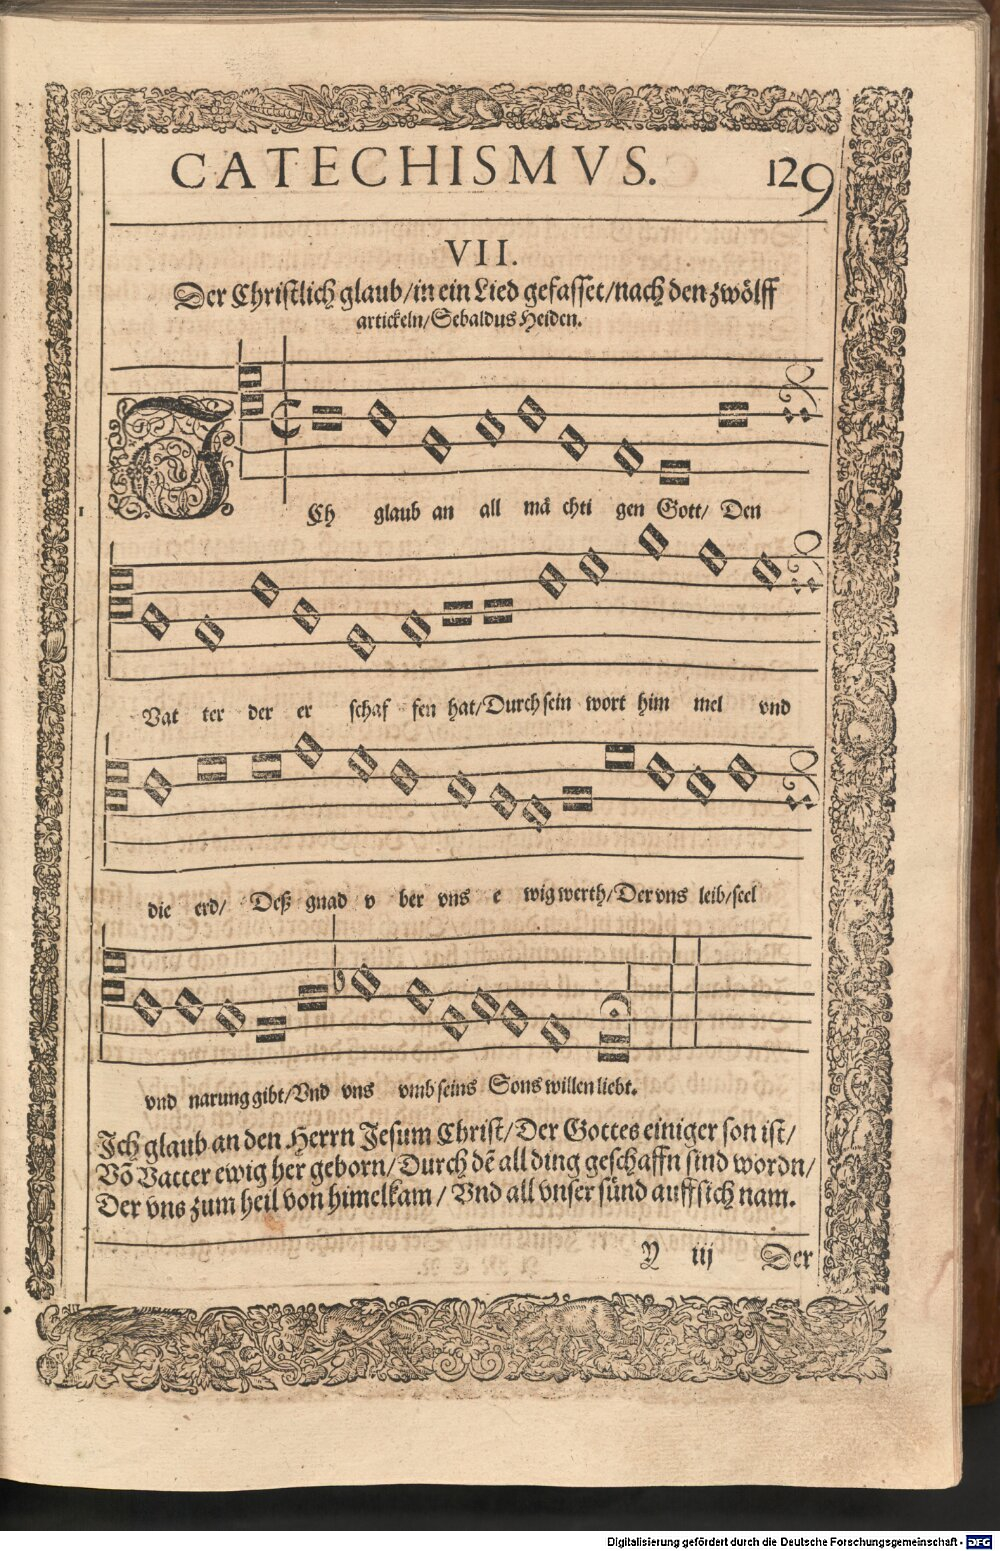 CATECHISMVS. 129
VII.
Der Christlich glaub/in ein Lied gefasset/nach den zwölff
artickeln/Sebaldus Heiden.
ICh glaub an all mä chti gen Gott/ Den
Vat ter der er schaf fen hat/Durch sein wort him mel vnd
die erd/ Deß gnad v ber vns e wig werth/Der vns leib/seel
vnd narung gibt/Vnd vns vmb seins Sons willen liebt.
Jch glaub an den Herrn Jesum Christ/Der Gottes einiger son ist/
Võ Vatter ewig her geborn/Durch dē all ding geschaffn sind wordn/
Der vns zum heil von himel kam/Vnd all vnser sünd auff sich nam.
Y iij Der
Digitalisierung gefördert durch die Deutsche Forschungsgemeinschaft - DFG